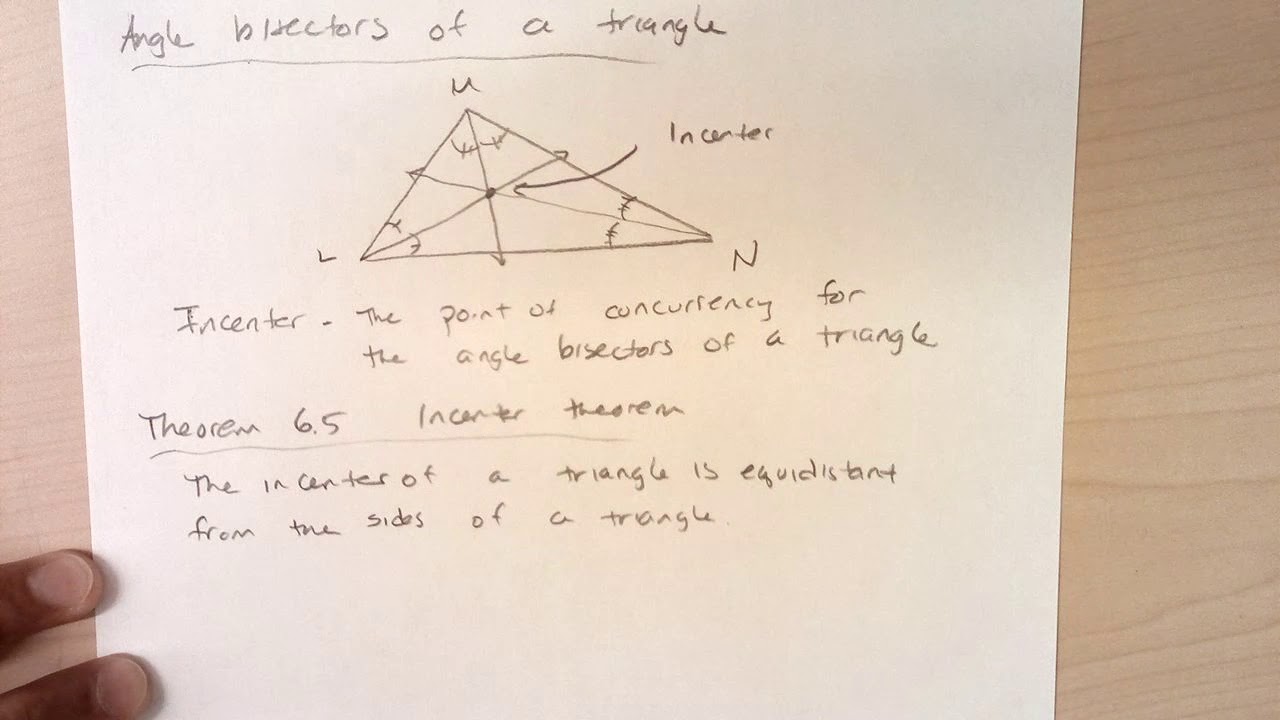 Angle bisectors of a triangle
M
Incenter
L
N
Incenter - The point of concurrency for
the angle bisectors of a triangle
Theorem 6.5 Incenter theorem
The incenter of a triangle is equidistant
from the sides of a triangle.